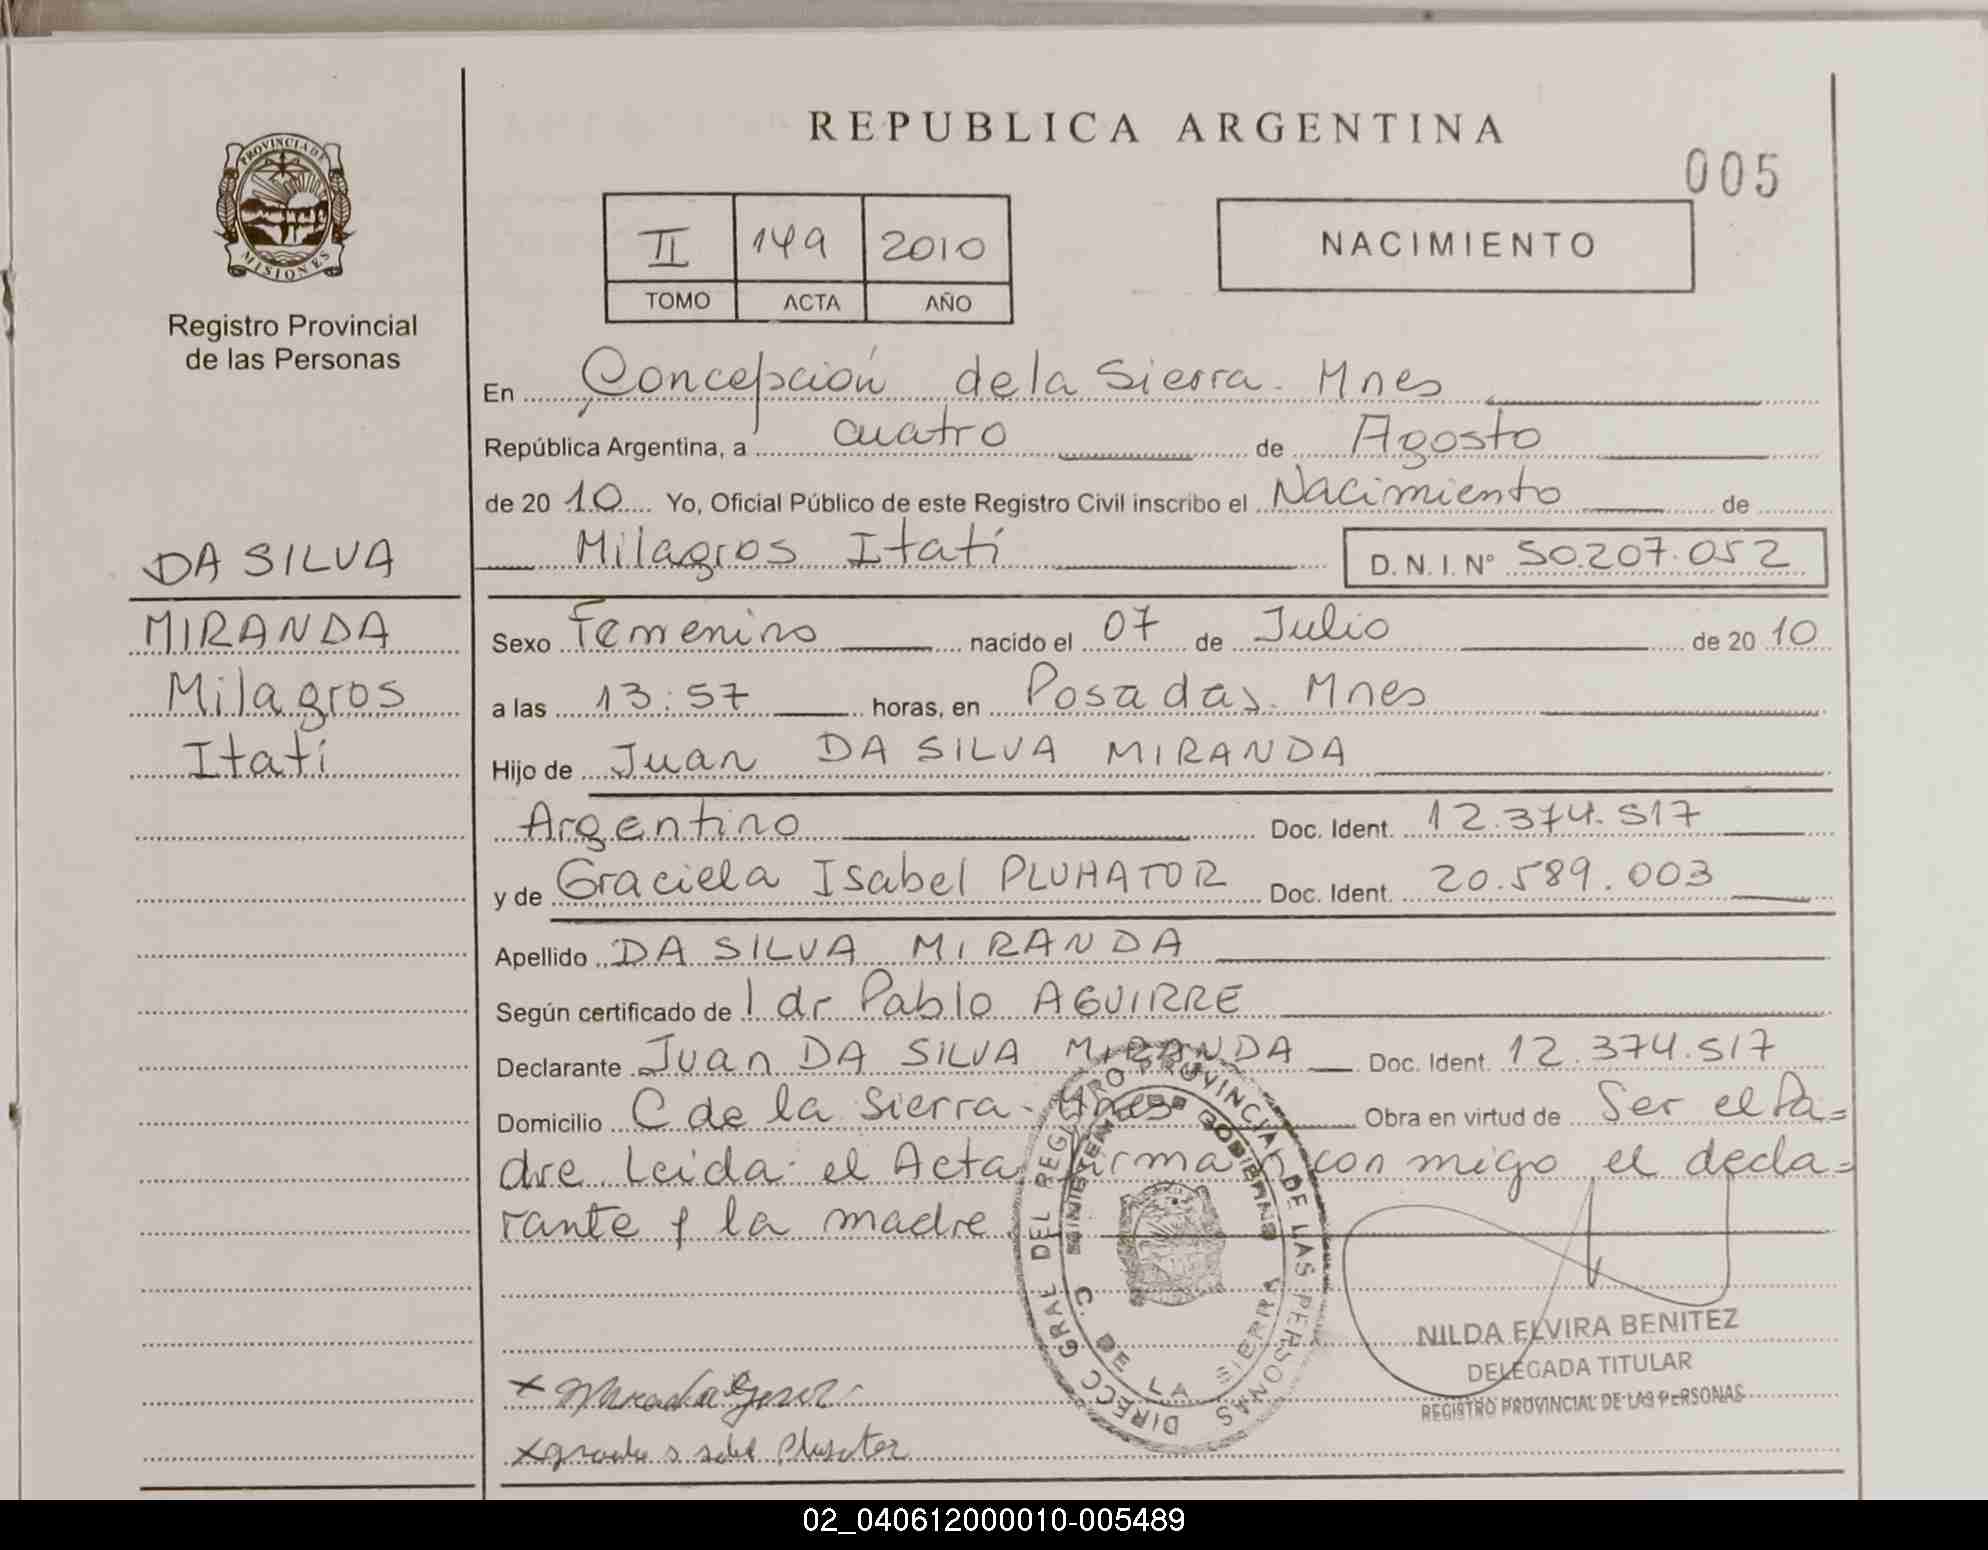 REPUBLICA ARGENTINA
005
PROVINCIA DE MISIONES
Registro Provincial
de las Personas
II 149 2010
TOMO ACTA AÑO
NACIMIENTO
En Concepción de la Sierra. Mnes
República Argentina, a cuatro de Agosto
de 20 10 Yo, Oficial Público de este Registro Civil inscribo el Nacimiento de
Milagros Itatí D.N.I. N° 50.207.052
DA SILVA
MIRANDA
Milagros
Itatí
Sexo Femenino nacido el 07 de Julio de 20 10
a las 13:57 horas, en Posadas. Mnes
Hijo de Juan DA SILVA MIRANDA
Argentino Doc. Ident. 12.374.517
y de Graciela Isabel PLUHATOR Doc. Ident. 20.589.003
Apellido DA SILVA MIRANDA
Según certificado de l dr Pablo AGUIRRE
Declarante Juan DA SILVA MIRANDA Doc. Ident. 12.374.517
Domicilio C de la Sierra. Mnes Obra en virtud de Ser el Pa=
dre Leida el Acta firman con migo el decla=
rante y la madre
DIRECC GRAL DEL REGISTRO PROVINCIAL DE LAS PERSONAS
MINISTERIO DE GOBIERNO
C. DE LA SIERRA
NILDA ELVIRA BENITEZ
DELEGADA TITULAR
REGISTRO PROVINCIAL DE LAS PERSONAS
02_040612000010-005489